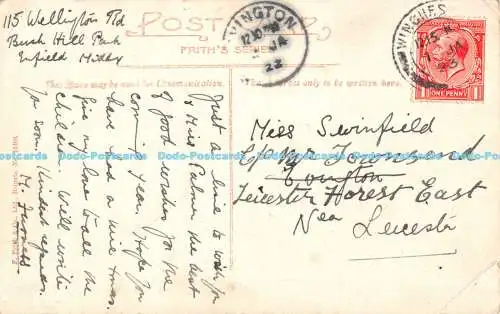 115 Wellington Rd
Bush Hill Park
Enfield Middx
POSTCARD
FRITH'S SERIES
WINGTON
12.30 PM
JA
23
WINCHES
12.15 AM
JA
ONE PENNY
This Space may be used for Communication.
The Address only to be written here.
Just a line to wish you
& Miss Palmer the best
of good wishes for the
coming year. Hope you
have had a nice Xmas.
Give my love to all the
children. Will write
you soon. Kindest regards.
M.
Miss Swinfield
c/o Mr Townsend
Evington
Leicester Forest East
Nea
Leicester
Dodo-Postcards Dodo-Postcards Dodo-Postcards Dodo-Postcards Dodo-Postcards